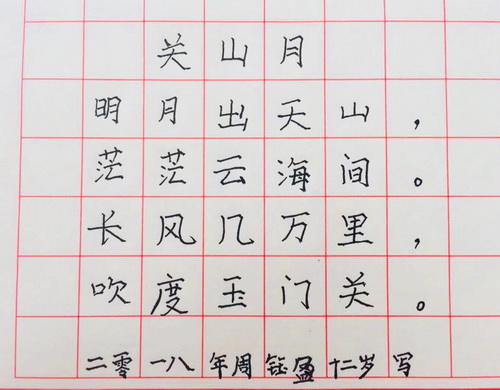 关山月
明月出天山，
茫茫云海间。
长风几万里，
吹度玉门关。
二零一八年周钰盈十二岁写